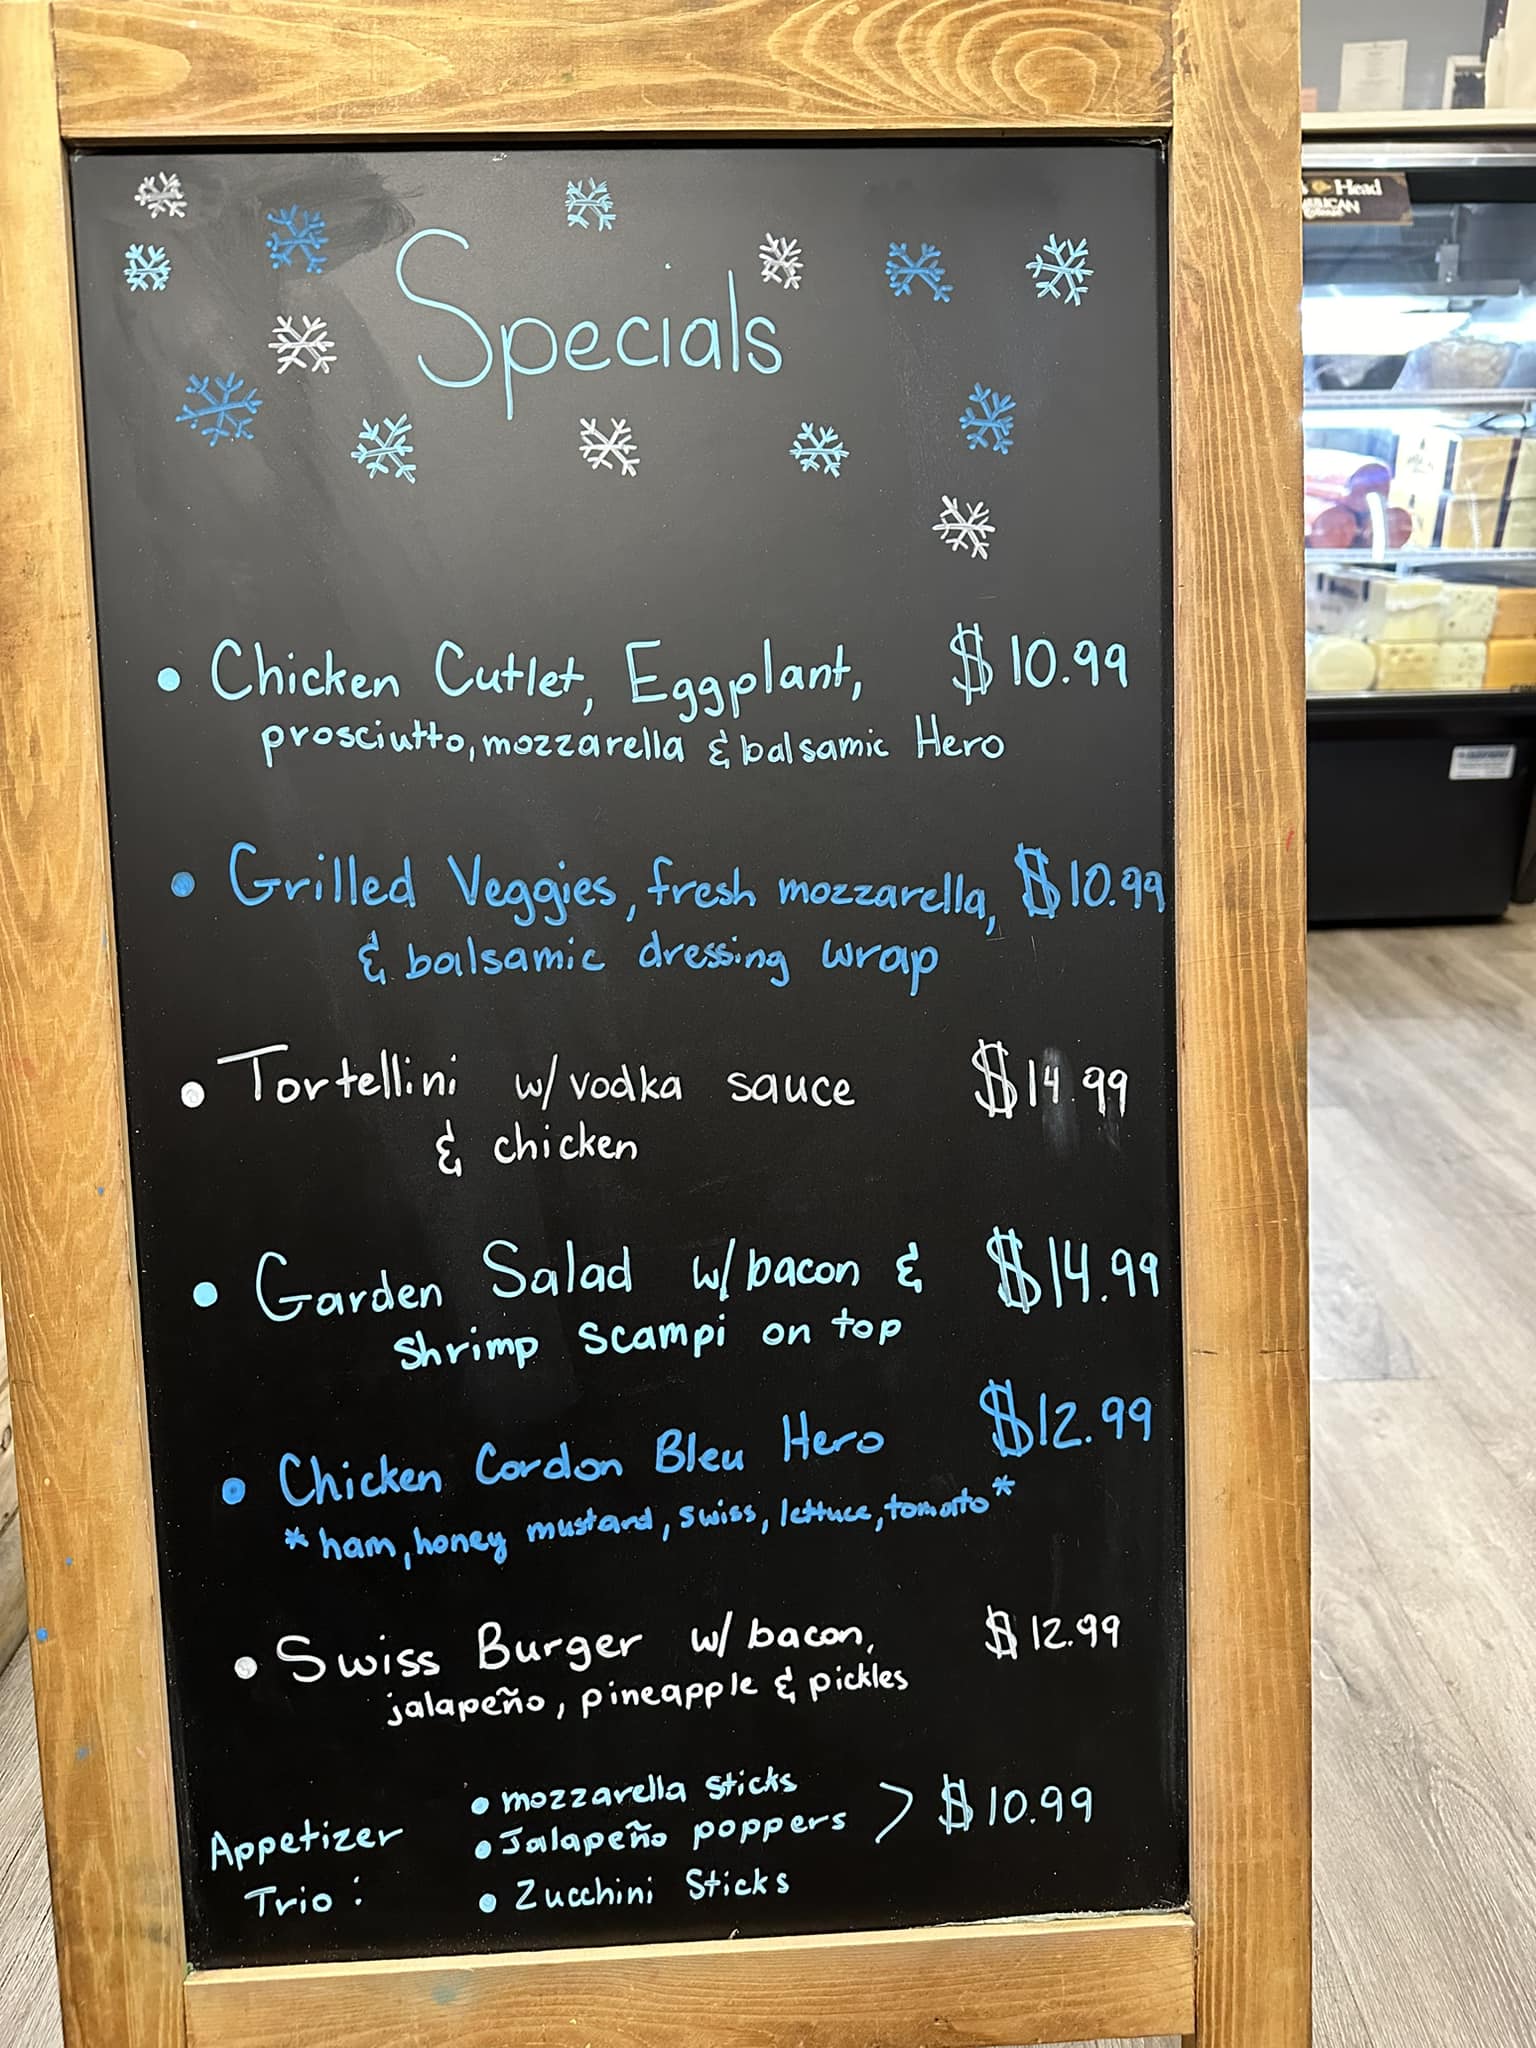 Specials
• Chicken Cutlet, Eggplant, $10.99
prosciutto, mozzarella & balsamic Hero
• Grilled Veggies, fresh mozzarella, $10.99
& balsamic dressing wrap
• Tortellini w/ vodka sauce $14.99
& chicken
• Garden Salad w/ bacon & $14.99
Shrimp Scampi on top
• Chicken Cordon Bleu Hero $12.99
*ham, honey mustard, swiss, lettuce, tomato*
• Swiss Burger w/ bacon, $12.99
jalapeño, pineapple & pickles
Appetizer Trio:
• mozzarella sticks
• Jalapeño poppers > $10.99
• Zucchini Sticks
Head